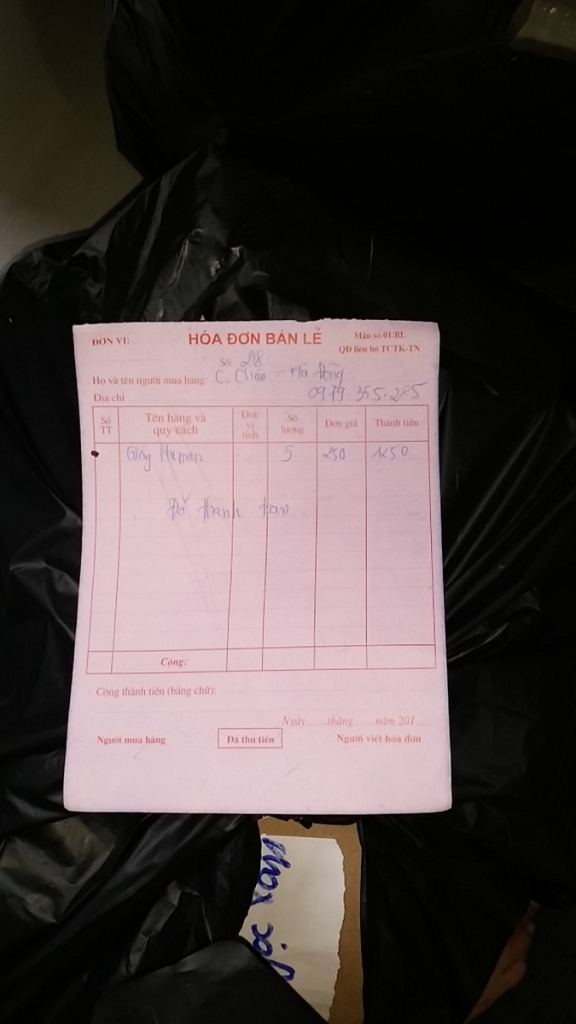 ĐƠN VỊ: HÓA ĐƠN BÁN LẺ Mẫu số 01/BL
QĐ liên bộ TCTK-TN
Số: 218
Họ và tên người mua hàng: C. - Hà Đông
Địa chỉ 0979 355.285
Số TT Tên hàng và quy cách Đơn vị tính Số lượng Đơn giá Thành tiền
Giầy 5 250 1250
Đã thanh toán
Cộng:
Cộng thành tiền (bằng chữ):
Ngày tháng năm 201
Người mua hàng Đã thu tiền Người viết hóa đơn